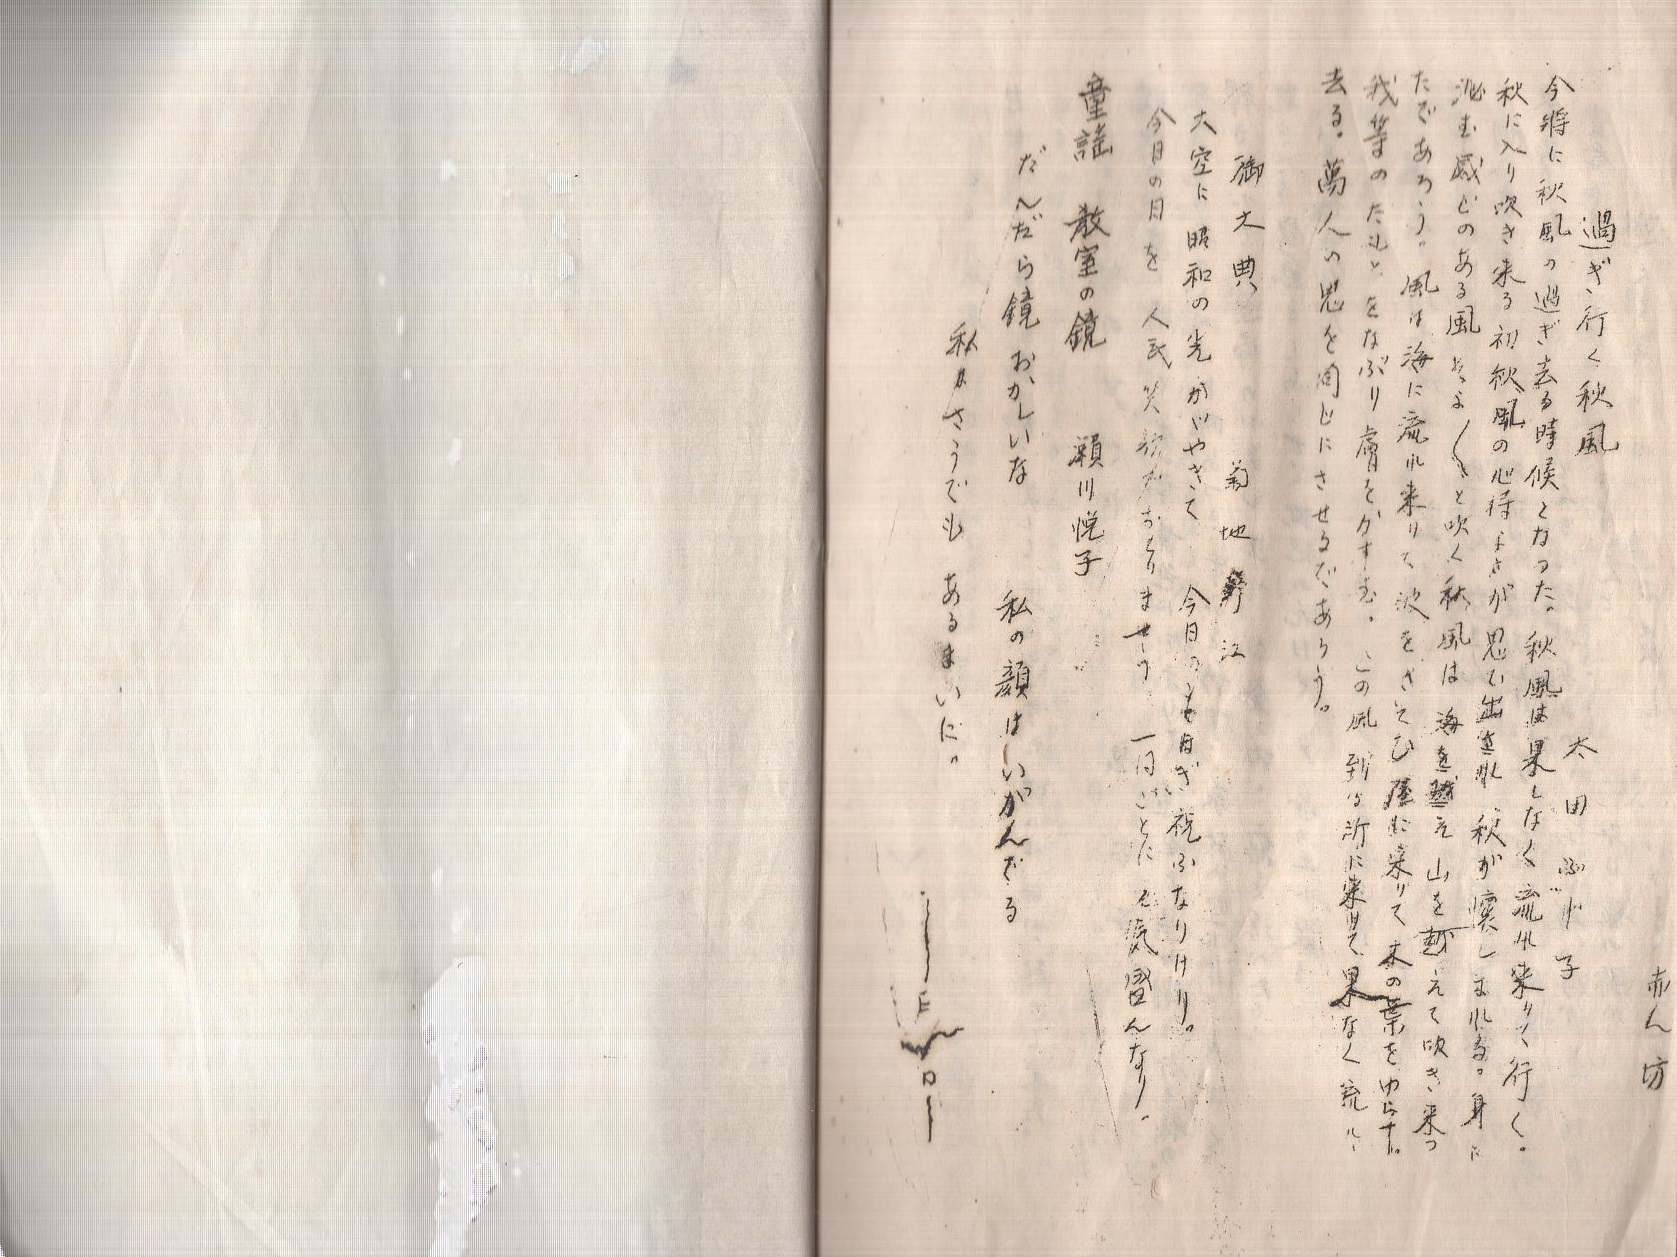 赤ん坊
過ぎ行く秋風
太田ふじ子
今將に秋風の過ぎ去る時候となつた。秋風は果しなく流れ来りて行く。
秋に入り吹き来る初秋風の心持よさが思ひ出され秋が懐しまれる。身に
泌む感じのある風そよ〱と吹く秋風は海を越え山を越えて吹き来つ
たであろう。風は海に流れ来りて波をさそひ 屋に来りて木の葉をゆらす。
我等のたもとをなぶり膚をかすむ。この風到る所に来りて果なく流れ
去る。萬人の思を同じにさせるであらう。
御大典
菊地 江
大空に昭和の光かゞやきて 今日 祝ふなりけり。
今日の日を人民 ませう 一日ごとに
童謡 教室の鏡 瀬川悦子
だんだら鏡 おかしいな 私の顔はいがんでる
私がさうでも あるまいに。